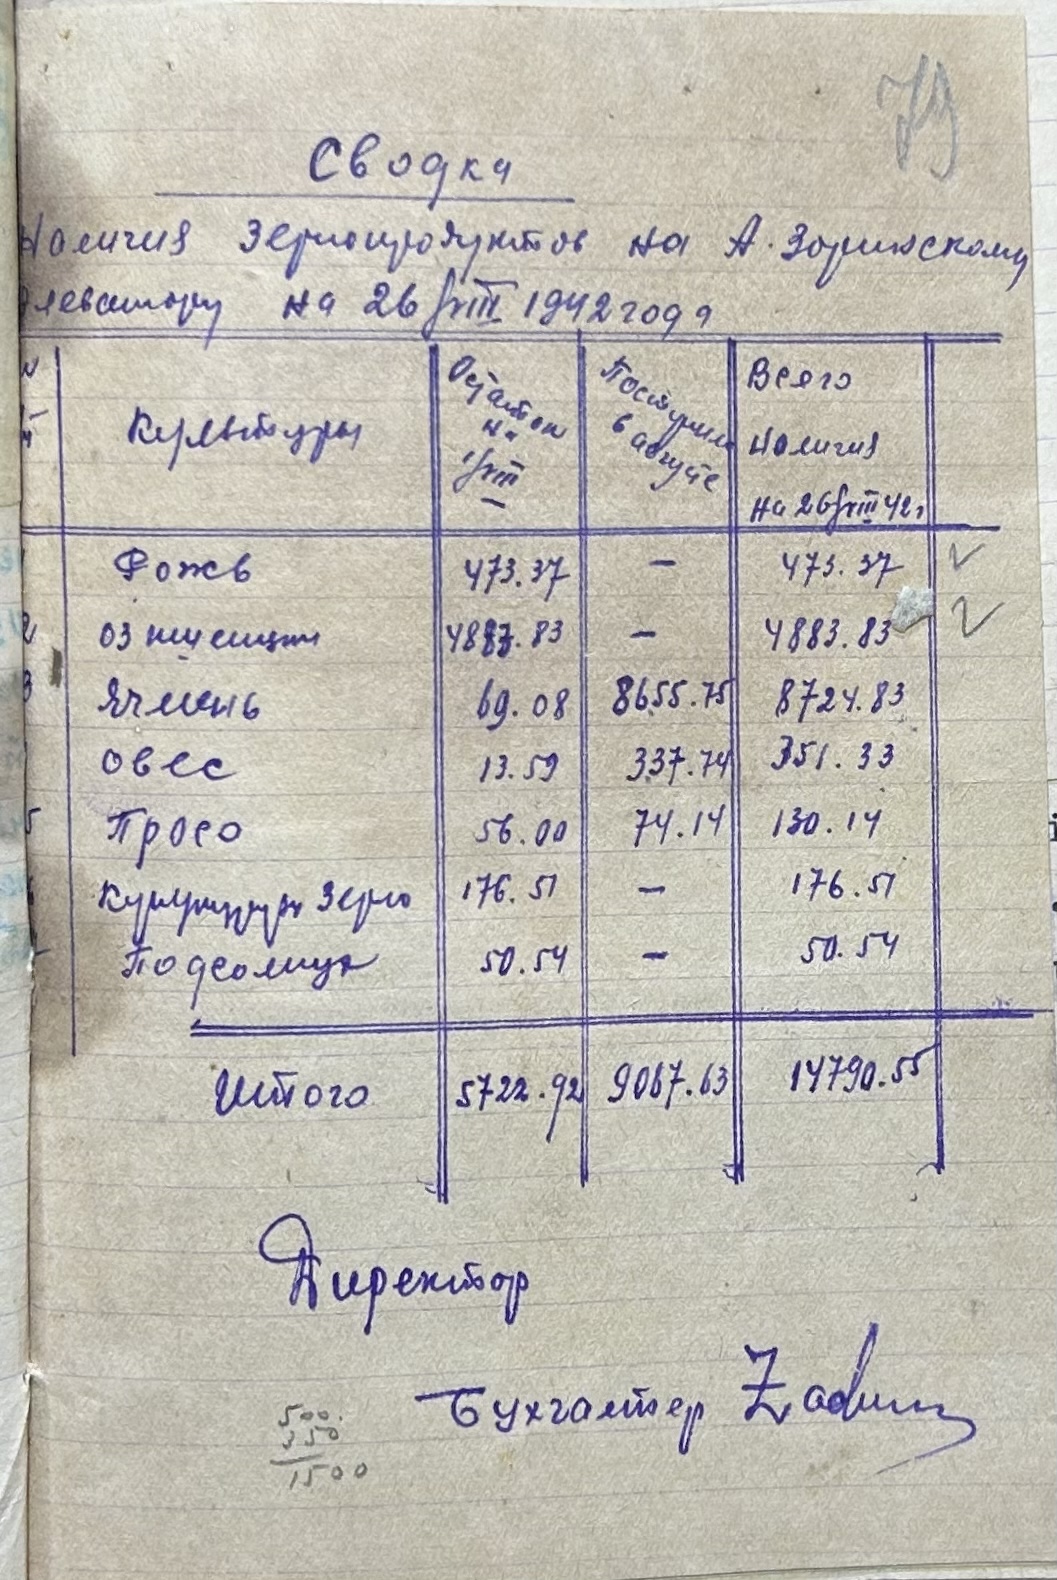 79
Сводка
Наличия Зернопродуктов на А. Зоринскому
элеватору на 26/VIII 1942 года
N Культуры Остаток на 1/VIII Поступило в августе Всего наличия на 26/VIII 42г
Рожь 473.37 — 473.37 ✓
2 оз пшеницы 4883.83 — 4883.83 ✓
3 Ячмень 69.08 8655.75 8724.83
овес 13.59 337.74 351.33
5 Просо 56.00 74.14 130.14
Кукуруза Зерно 176.51 — 176.51
Подсолнух 50.54 — 50.54
Итого 5722.92 9067.63 14790.55
Директор
Бухгалтер
500.
350
1500